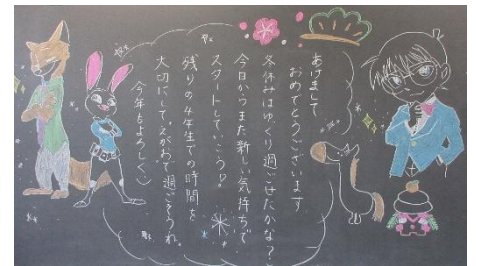 あけまして
おめでとうございます。
冬休みはゆっくり過ごせたかな?
今日からまた新しい気持ちで
スタートしていこう!。
残りの4年生での時間を
大切にして。えがおで過ごそうね。
今年もよろしく